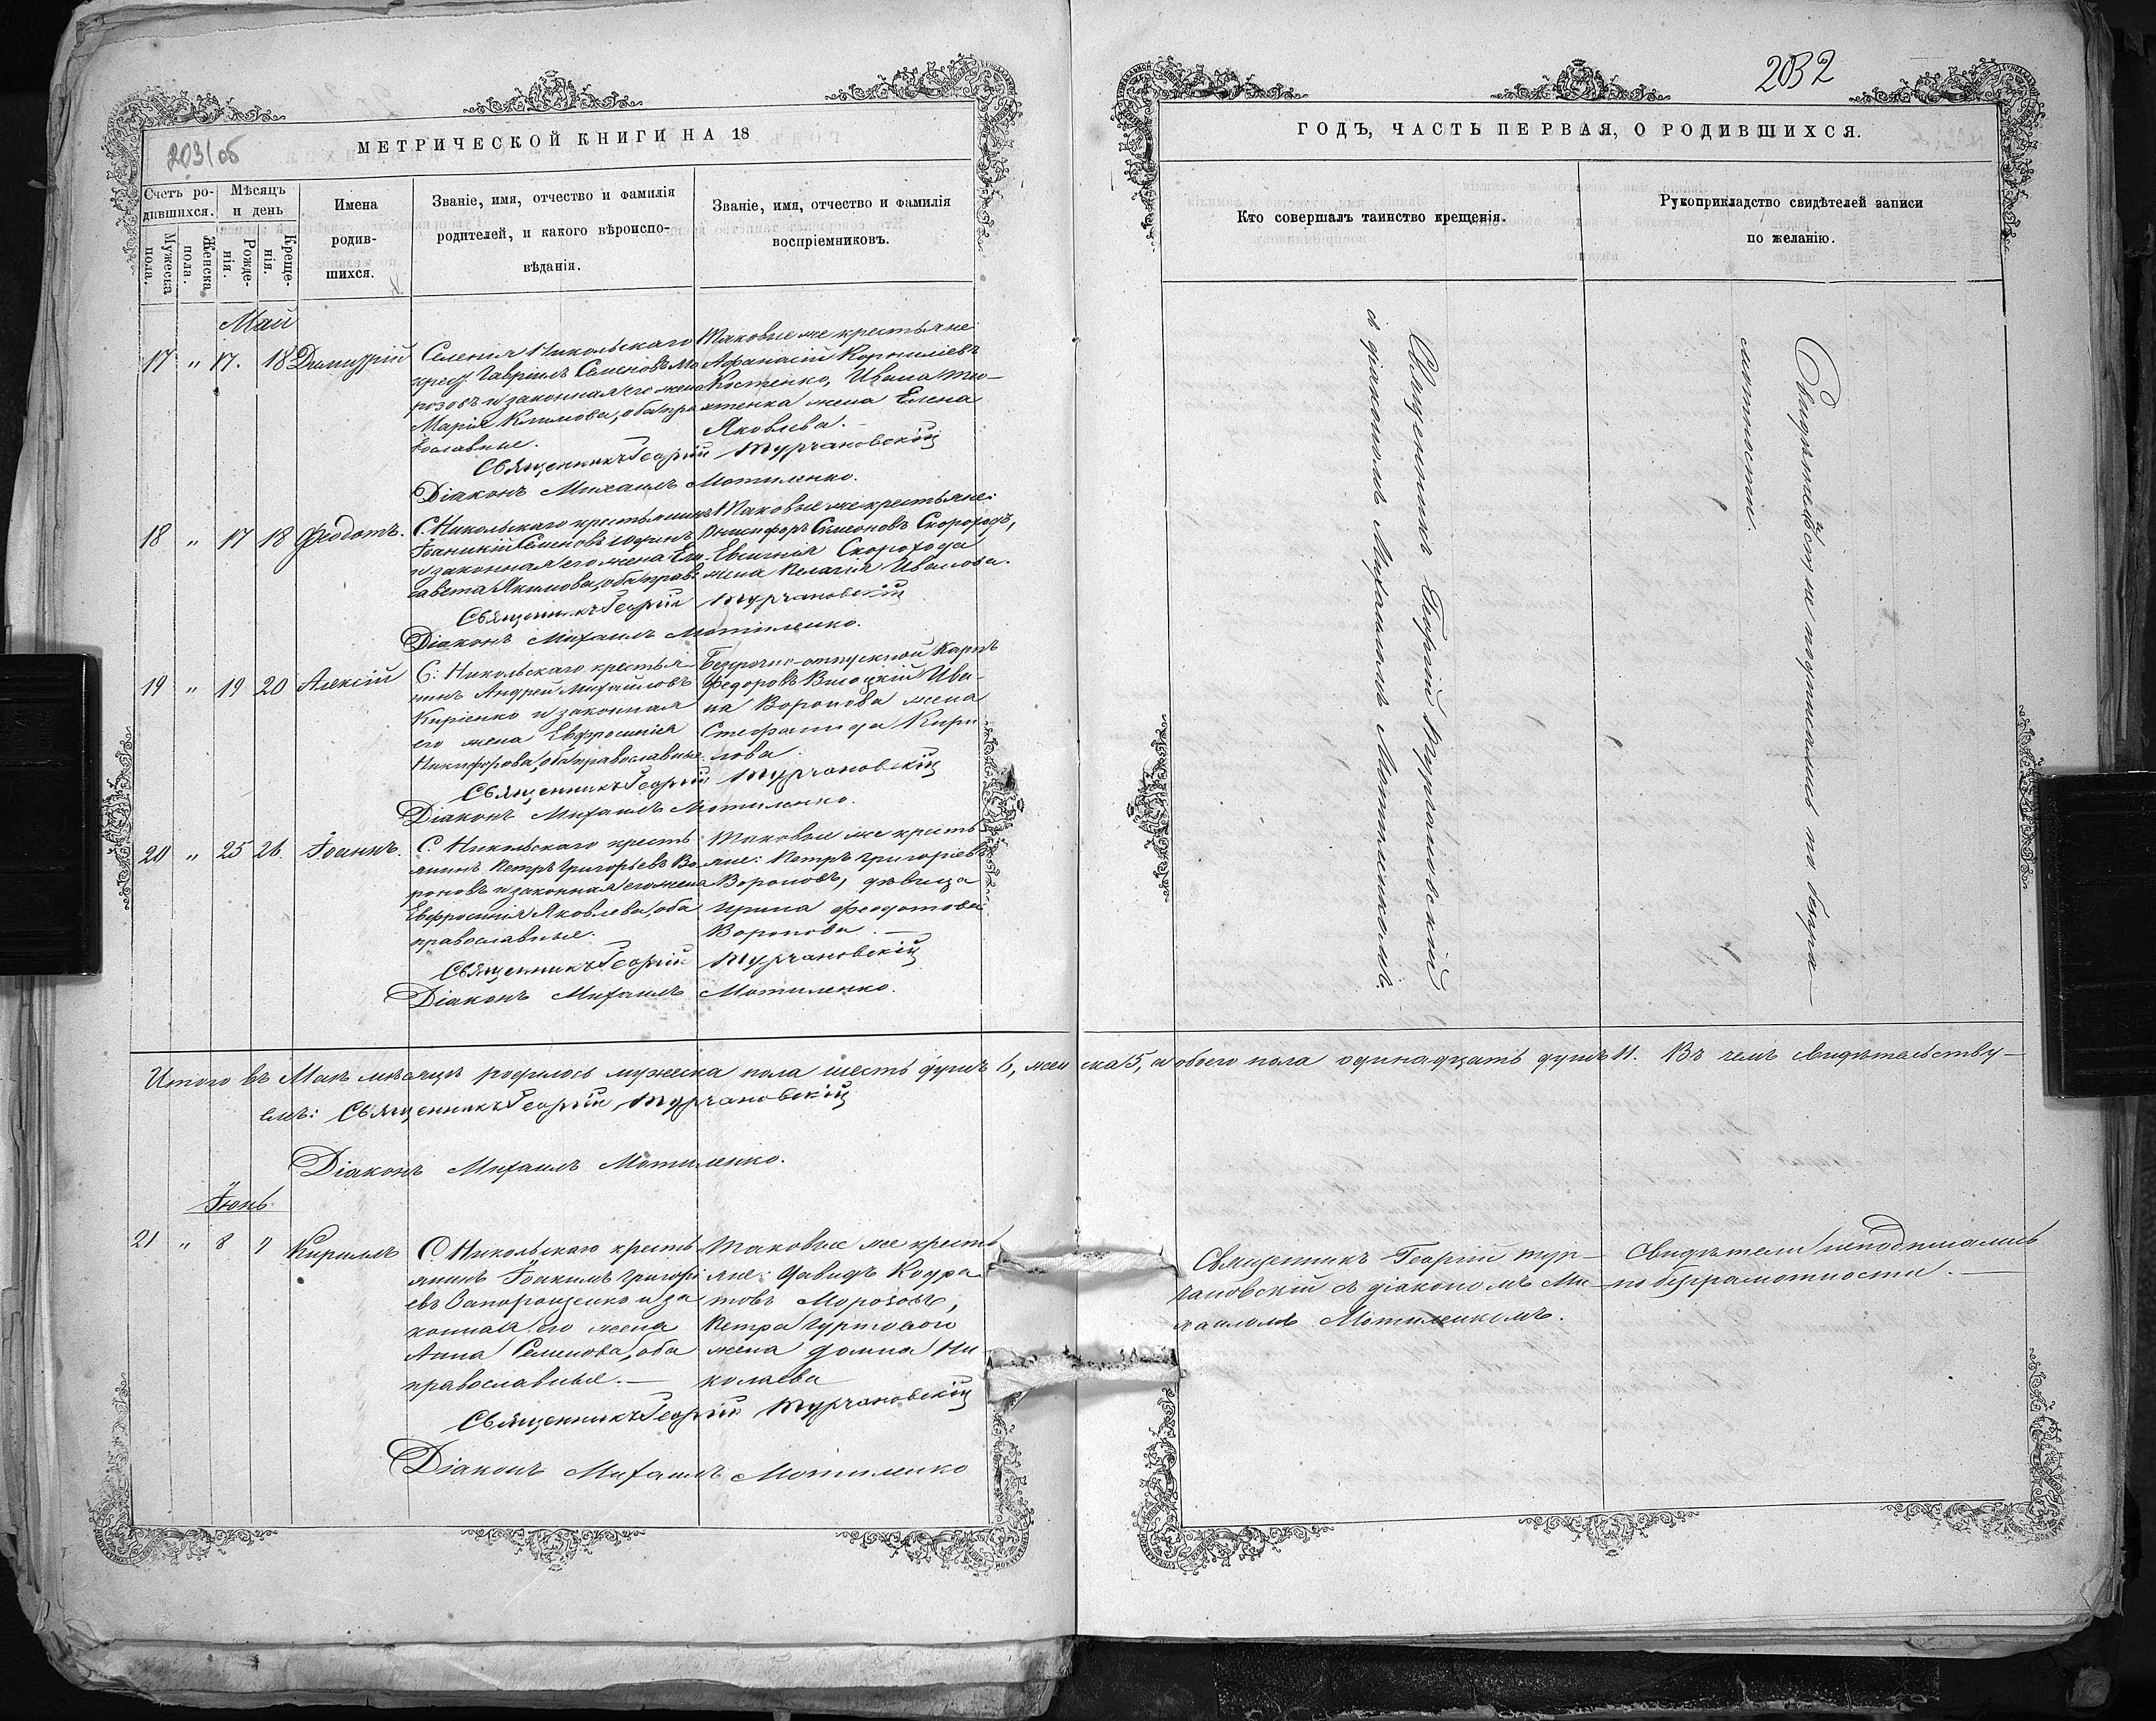 203/об
МЕТРИЧЕСКОЙ КНИГИ НА 18
Счетъ ро-
дившихся.
Мужеска
пола.
Женска
пола.
Мѣсяцъ
и день
Рожде-
нія.
Креще-
нія.
Имена
родив-
шихся.
Званіе, имя, отчество и фамилія
родителей, и какого вѣроиспо-
вѣданія.
Званіе, имя, отчество и фамилія
воспріемниковъ.
Май
17 " 17. 18 Димитрій
Селенія Никольскаго
крест Гавріилъ Семеновъ Мо
розовъ и законная его жена
Марія Климова, оба пра
вославные.
Таковые же крестьяне
Афанасій Корниліевъ
Костенко, Ивана Тю-
тенка жена Елена
Яковлева.
Священникъ Георгій Турчановскій
Діаконъ Михаилъ Мотиленко.
18 " 17 18 Феодотъ.
С. Никольскаго крестьянинъ
Іоаникій Семеновъ Юдинъ
и законная его жена Ели
савета Якимова, оба прав:
Таковые же крестьяне:
Никифоръ Симеоновъ Скороходъ,
Евсигнія Скорохода
жена Пелагія Иванова.
Священникъ Георгій Турчановскій
Діаконъ Михаилъ Мотиленко.
19 " 19 20 Алексій
С: Никольскаго крестья-
нинъ Андрей Михайловъ
Киріенко и законная
его жена Евфросинія
Никифорова, оба православные.
Безсрочно-отпускной Карпъ
Федоровъ Высоцкій Ива-
на Воронова жена
Стефанида Кири
лова.
Священникъ Георгій Турчановскій
Діаконъ Михаилъ Мотиленко.
20 " 25 26. Іоаннъ.
С. Никольскаго кресть
янинъ Петръ Григорьевъ Во
роновъ и законная его жена
Евфросинія Яковлева, оба
православные.
Таковые же кресть
яне: Петръ Григоріевъ
Вороновъ, дѣвица
Ирина Феодотова
Воронова. —
Священникъ Георгій Турчановскій
Діаконъ Михаилъ Мотиленко.
Итого въ Маѣ мѣсяцѣ родилось мужеска пола шесть душъ 6, женска 5, а обоего пола одинадцать душъ 11. Въ чемъ свидѣтельству-
емъ: Священникъ Георгій Турчановскій
Діаконъ Михаилъ Мотиленко.
Іюнь
21 " 8 9 Кириллъ
С. Никольскаго кресть
янинъ Іоакимъ Григорі
евъ Запорощенко и за
конная его жена
Анна Семенова, оба
православные. —
Таковые же кресть
яне: Давидъ Кодра
товъ Морозовъ,
Петра Гуртового
жена Домна Ни
колаева
Священникъ Георгій Турчановскій
Діаконъ Михаилъ Мотиленко
2032
ГОДЪ, ЧАСТЬ ПЕРВАЯ, О РОДИВШИХСЯ.
Кто совершалъ таинство крещенія.
Рукоприкладство свидѣтелей записи
по желанію.
Священникъ Георгій Турчановскій
съ діакономъ Михаиломъ Мотиленкомъ.
Свидѣтели не подписались по безгра-
мотности.
Священникъ Георгій Тур-
чановскій съ діакономъ Ми-
хаиломъ Мотиленкомъ.
Свидѣтели неподписались
по безграмотности. —